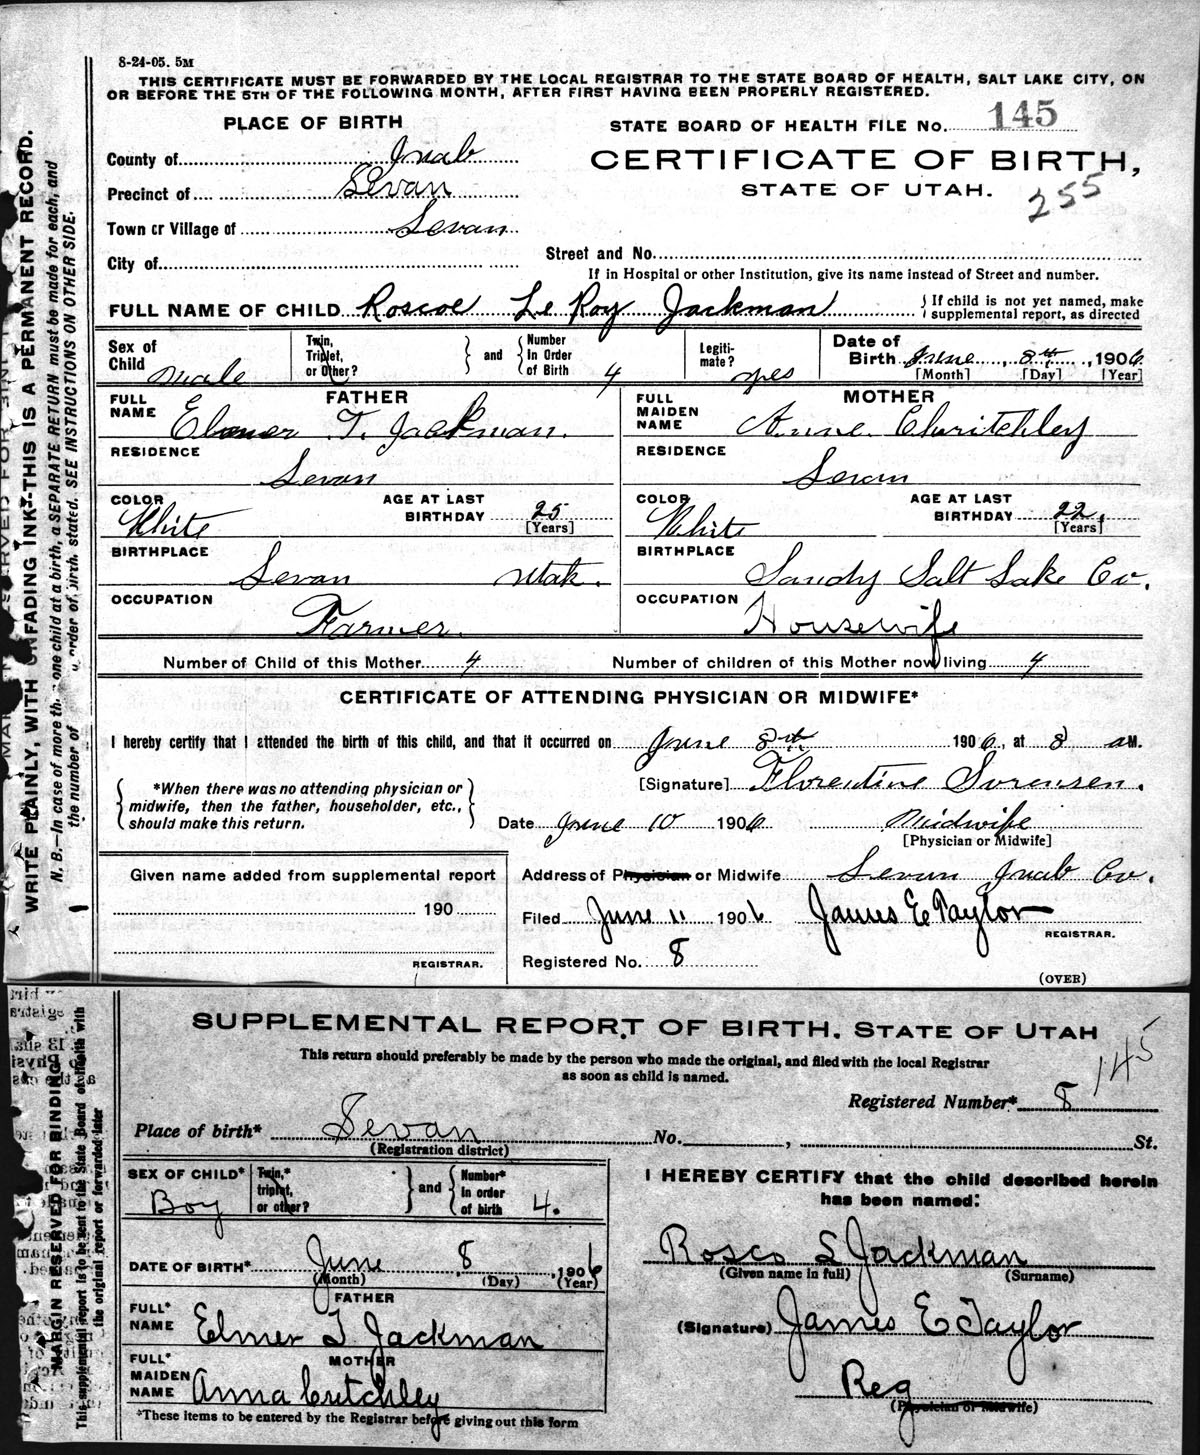 8-24-05. 5M
THIS CERTIFICATE MUST BE FORWARDED BY THE LOCAL REGISTRAR TO THE STATE BOARD OF HEALTH, SALT LAKE CITY, ON
OR BEFORE THE 5TH OF THE FOLLOWING MONTH, AFTER FIRST HAVING BEEN PROPERLY REGISTERED.
PLACE OF BIRTH
STATE BOARD OF HEALTH FILE No. 145
County of Juab
CERTIFICATE OF BIRTH,
Precinct of Levan
STATE OF UTAH.
255
Town or Village of Levan
City of
Street and No.
If in Hospital or other Institution, give its name instead of Street and number.
FULL NAME OF CHILD Roscoe Le Roy Jackman
If child is not yet named, make
supplemental report, as directed
Sex of Child male
Twin, Triplet, or Other? and Number In Order of Birth 4
Legitimate? yes
Date of Birth June, 8th, 1906
[Month] [Day] [Year]
FATHER
FULL NAME T. Jackman.
MOTHER
FULL MAIDEN NAME Anne Chritchley
RESIDENCE Levan
RESIDENCE Levan
COLOR White
AGE AT LAST BIRTHDAY 25 [Years]
COLOR White
AGE AT LAST BIRTHDAY 22. [Years]
BIRTHPLACE Levan Utah.
BIRTHPLACE Sandy Salt Lake Co.
OCCUPATION Farmer.
OCCUPATION Housewife
Number of Child of this Mother 4
Number of children of this Mother now living 4
CERTIFICATE OF ATTENDING PHYSICIAN OR MIDWIFE*
I hereby certify that I attended the birth of this child, and that it occurred on June 8th 1906, at 8 aM.
[Signature] Florentine Sorensen.
*When there was no attending physician or
midwife, then the father, householder, etc.,
should make this return.
Date June 10 1906 Midwife
[Physician or Midwife]
Given name added from supplemental report
Address of Physician or Midwife Levan Juab Co.
190
Filed June 11 1906 James E Taylor
REGISTRAR.
Registered No. 8
REGISTRAR.
(OVER)
WRITE PLAINLY, WITH UNFADING INK—THIS IS A PERMANENT RECORD.
N. B.—In case of more than one child at a birth, a SEPARATE RETURN must be made for each, and
the number of order of birth, stated. SEE INSTRUCTIONS ON OTHER SIDE.
SUPPLEMENTAL REPORT OF BIRTH. STATE OF UTAH
This return should preferably be made by the person who made the original, and filed with the local Registrar
as soon as child is named.
145
Registered Number* 8
Place of birth* Levan No. , St.
(Registration district)
SEX OF CHILD* Boy
Twin,* triplet, or other? and Number* In order of birth 4.
I HEREBY CERTIFY that the child described herein
has been named:
DATE OF BIRTH* June 8, 1906
(Month) (Day) (Year)
Rosco L Jackman
(Given name in full) (Surname)
FATHER
FULL* NAME Elmer T Jackman
(Signature) James E Taylor
MOTHER
FULL* MAIDEN NAME Anna Critchley
Reg
(Physician or Midwife)
*These items to be entered by the Registrar before giving out this form
MARGIN RESERVED FOR BINDING
This supplemental report is to be sent to the State Board of Health with
the original report or forwarded later